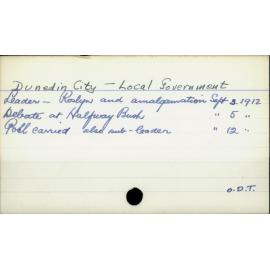 Dunedin City - Local Government
Leader - Roslyn and amalgamation Sept 3. 1912
Debate at Halfway Bush " 5 "
Poll carried also sub-leader " 12 "
O.D.T.